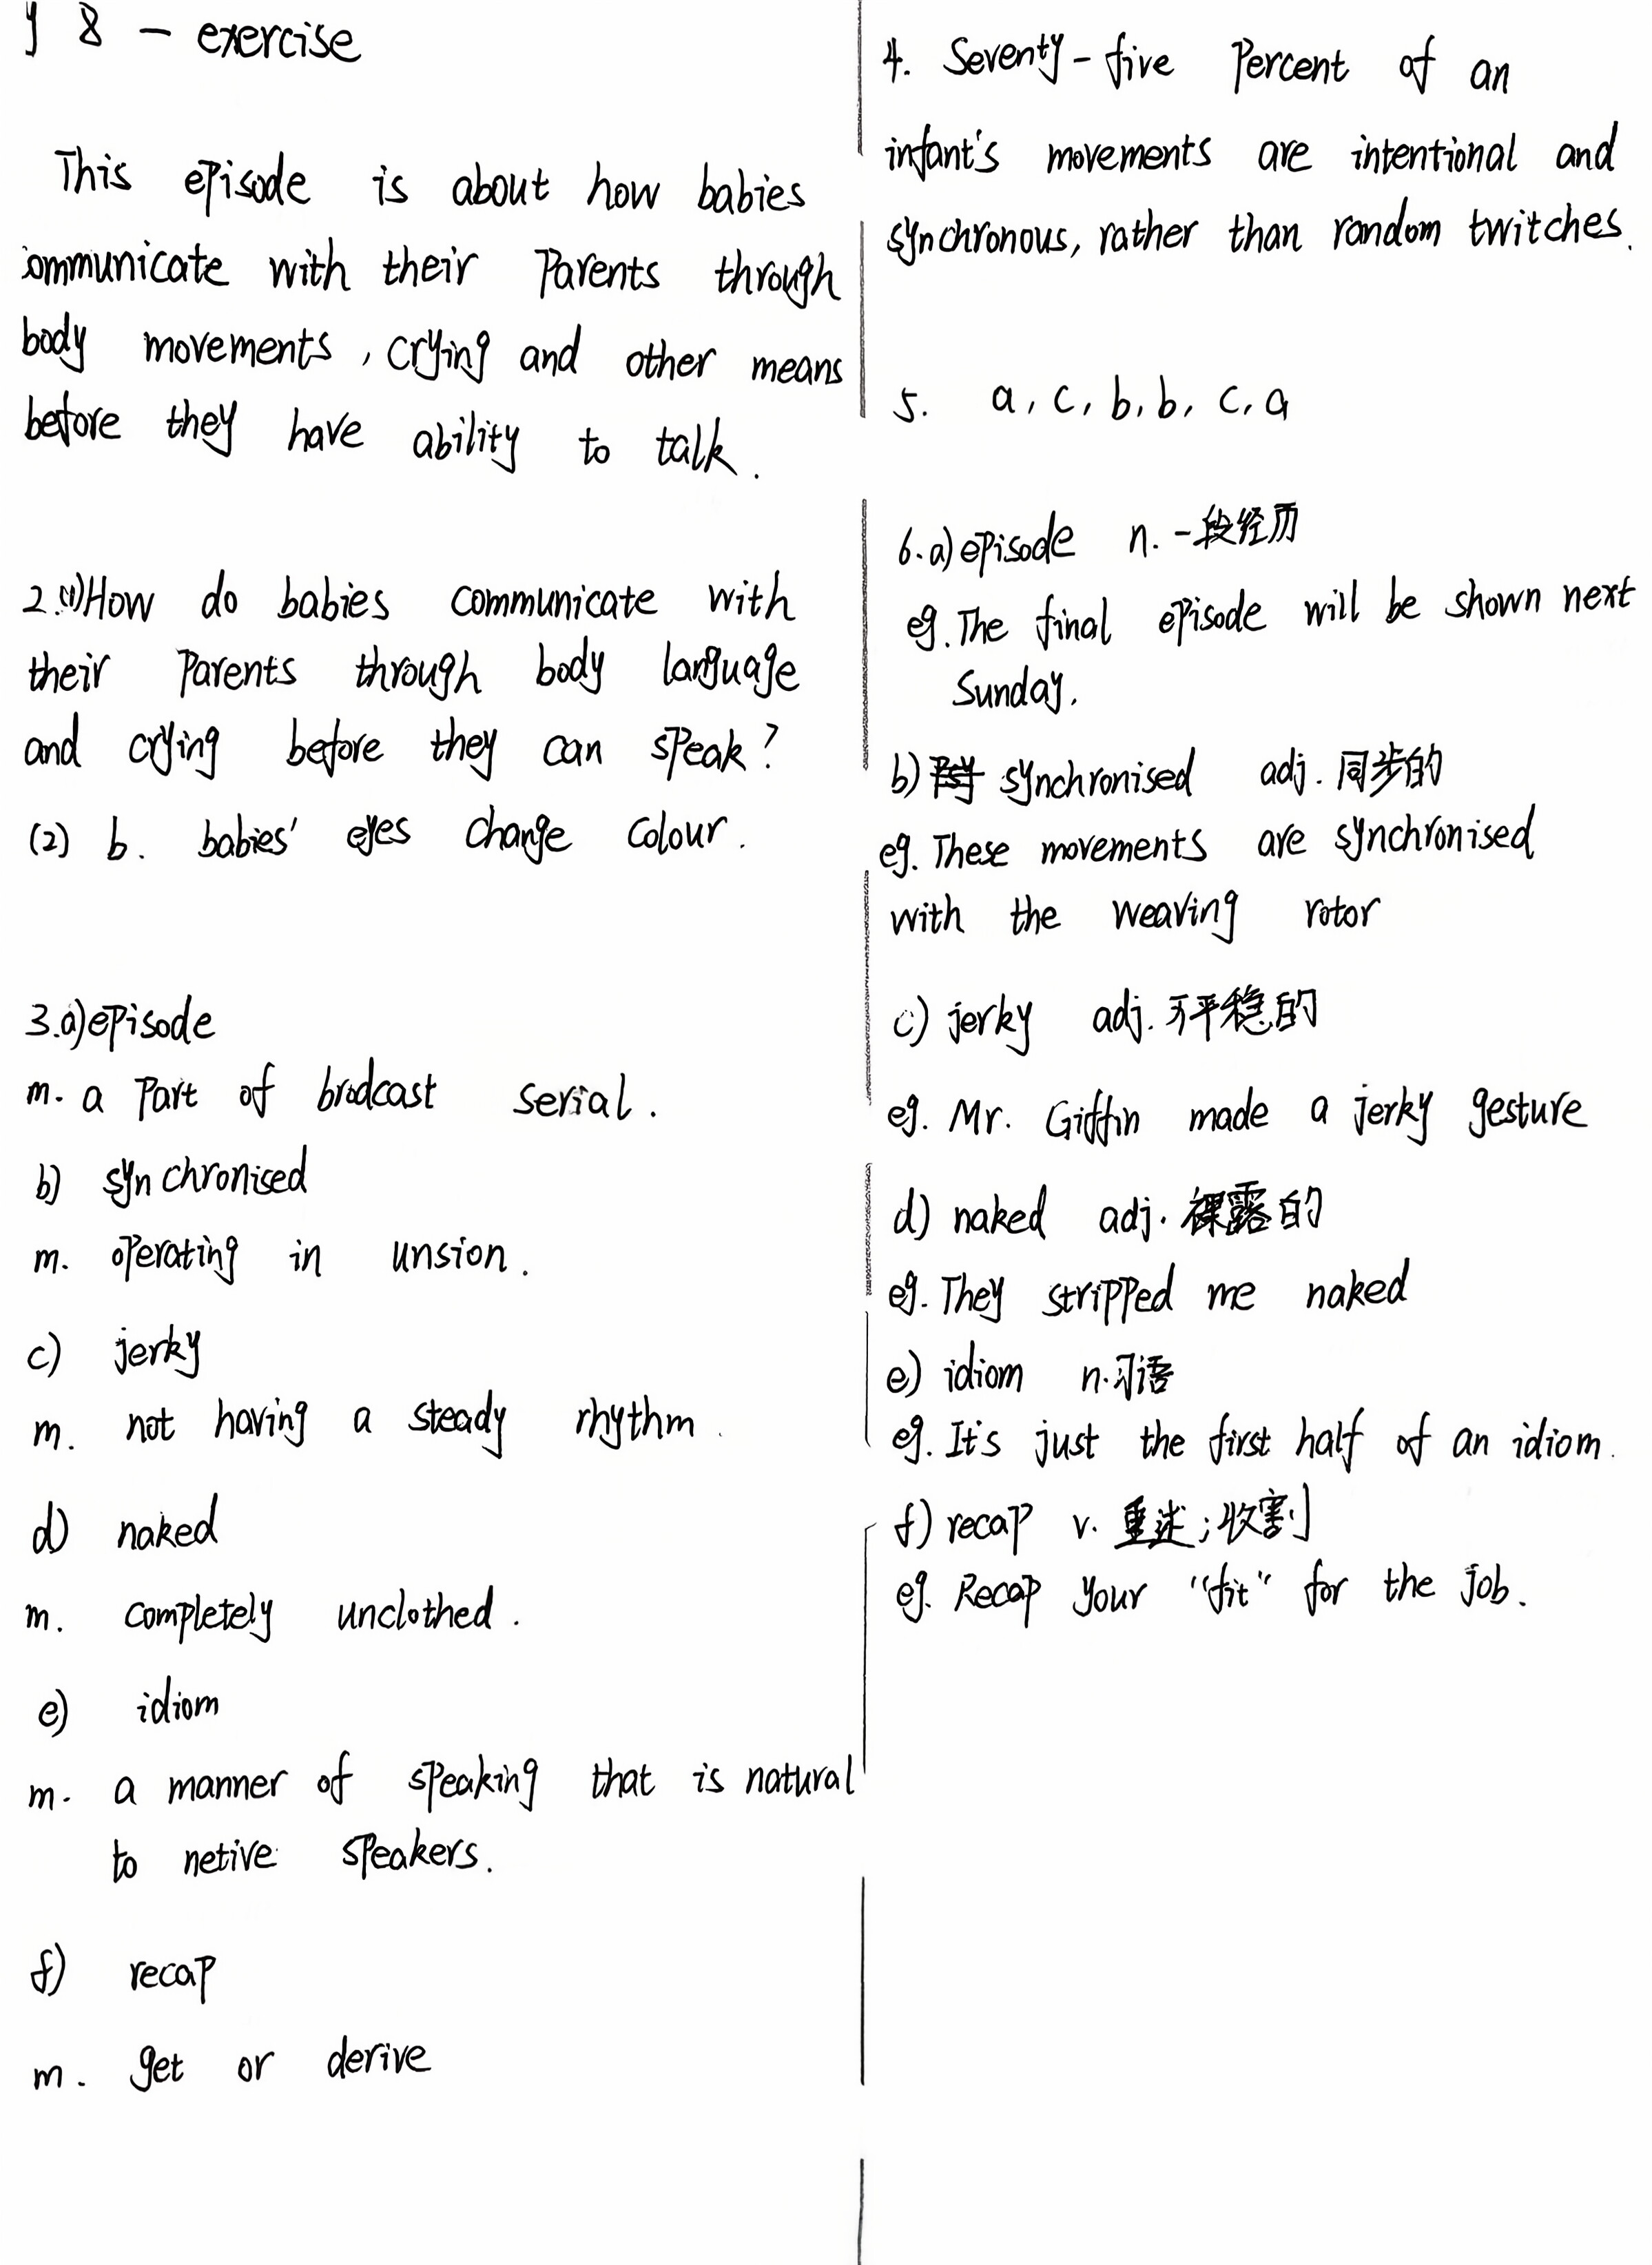 8 - exercise
This episode is about how babies
ommunicate with their Parents through
body movements, crying and other means
before they have ability to talk.
2.(1)How do babies communicate with
their Parents through body language
and crying before they can speak?
(2) b. babies' eyes change colour.
3.a)episode
m. a Part of brodcast serial.
b) synchronised
m. operating in unsion.
c) jerky
m. not having a steady rhythm.
d) naked
m. completely unclothed.
e) idiom
m. a manner of speaking that is natural
to netive speakers.
f) recap
m. get or derive
4. Seventy-five Percent of an
infant's movements are intentional and
synchronous, rather than random twitches.
5. a, c, b, b, c, a
6.a)episode n. 一段经历
eg. The final episode will be shown next
Sunday.
b) synchronised adj. 同步的
eg. These movements are synchronised
with the weaving rotor
c) jerky adj. 不平稳的
eg. Mr. Giffin made a jerky gesture
d) naked adj. 裸露的
eg. They stripped me naked
e) idiom n. 习语
eg. It's just the first half of an idiom.
f) recap v. 重述;收割
eg. Recap your "fit" for the job.